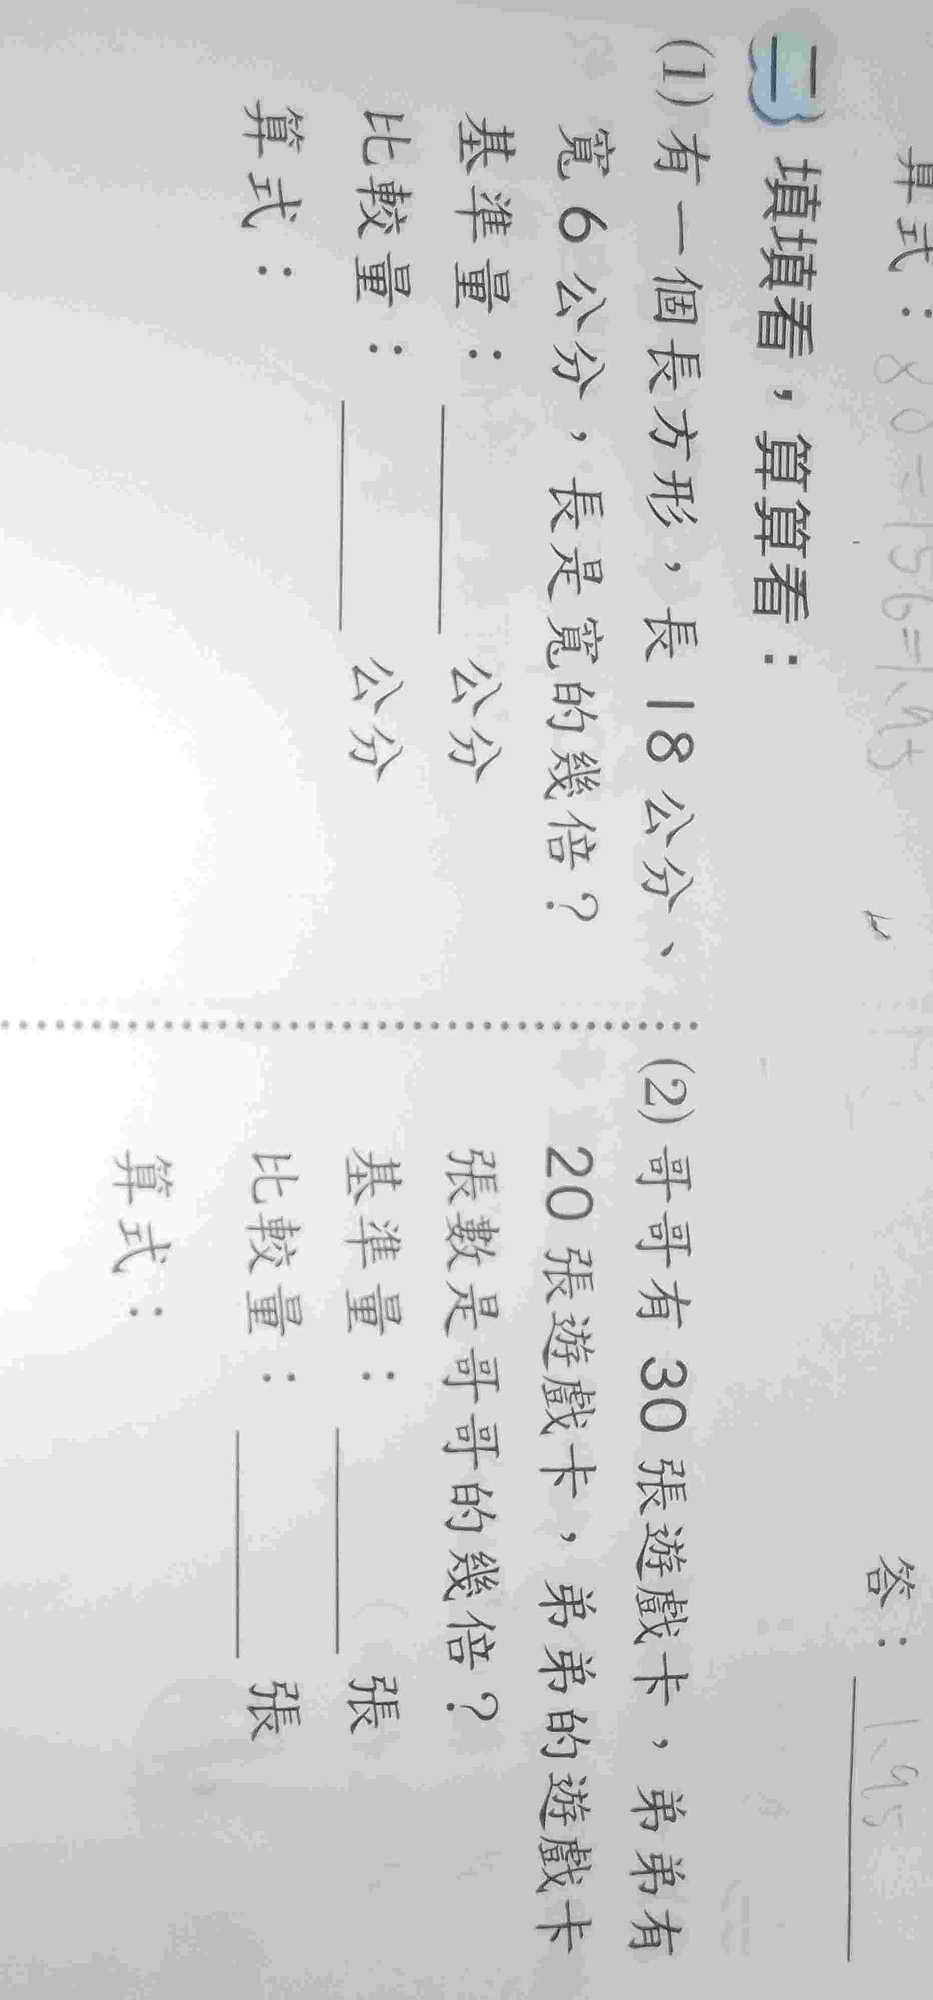 算式：80=156=1.95
答：1.95
二 填填看，算算看：
(1) 有一個長方形，長 18 公分、
寬 6 公分，長是寬的幾倍？
基準量： 公分
比較量： 公分
算式：
(2) 哥哥有 30 張遊戲卡，弟弟有
20 張遊戲卡，弟弟的遊戲卡
張數是哥哥的幾倍？
基準量： 張
比較量： 張
算式：